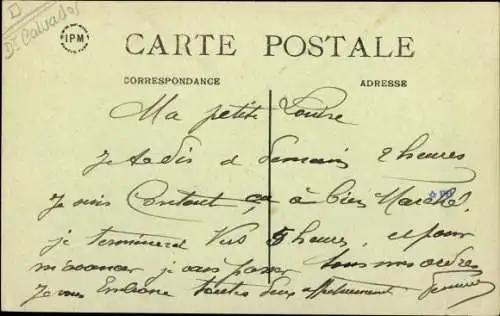 Dt Calvados
IPM
CARTE POSTALE
CORRESPONDANCE
ADRESSE
Ma petite Louise
Je te dis a demain 2 heures
Je suis Content ça a bien Marché,
je terminerai Vers 5 heures, et pour
m'avancer je vais passer tous mes ordres
Je vous Embrasse toutes deux affectueusement